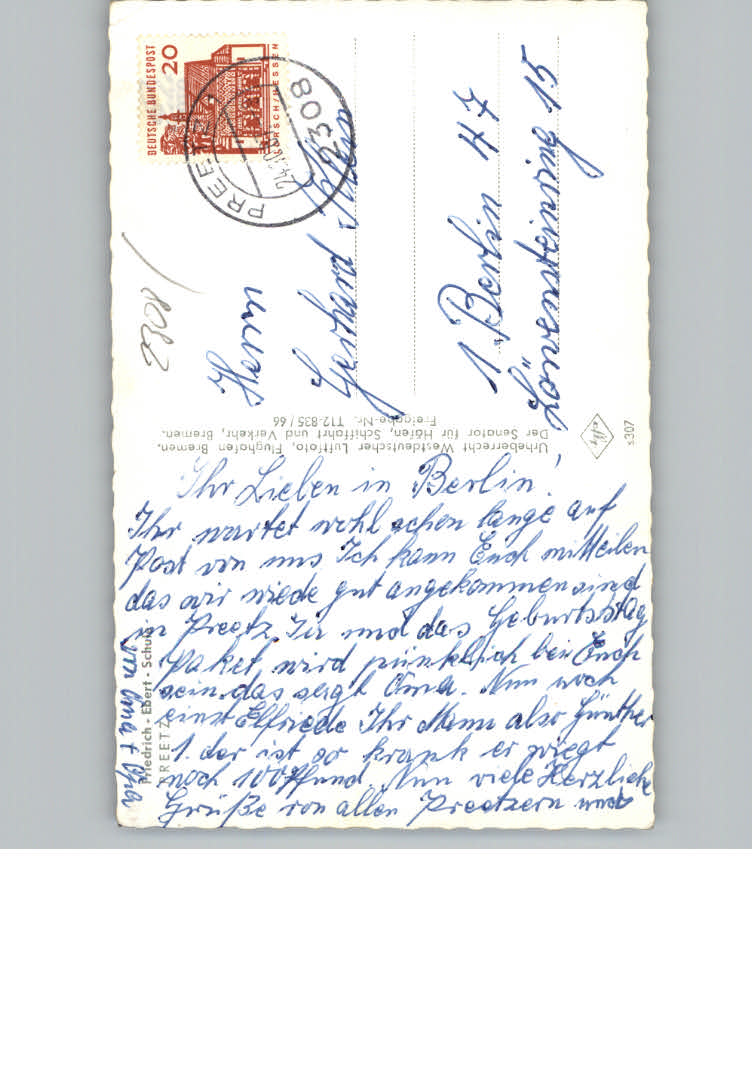 DEUTSCHE BUNDESPOST
20
LORSCH/HESSEN
PREETZ
2308
24.10.
2308
Herrn
Gerhard
1 Berlin 47
Löwensteinring 15
Urheberrecht Westdeutscher Luftfoto, Flughafen Bremen.
Der Senator für Häfen, Schiffahrt und Verkehr, Bremen.
Freigabe-Nr. T12-835/66
s307
Ihr Lieben in Berlin!
Ihr wartet wohl schon lange auf
Post von uns Ich kann Euch mitteilen
das wir wiede gut angekommen sind
in Preetz. Ja und das Geburtsstag
Paket, wird pünklich bei Euch
sein. das sagt Oma. Nun noch
einst Elfriede Ihr Mann also Günther
1. der ist so krank er wiegt
noch 100 Pfund Nun viele Herzliche
Grüße von allen Preetzern und
von Oma + Opa
Friedrich - Ebert - Schule
PREETZ